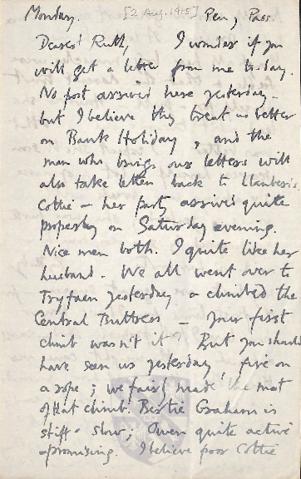 Monday. [2 Aug. 1915] Pen y Pass.
Dearest Ruth, I wonder if you
will get a letter from me to-day.
No post arrived here yesterday –
but I believe they treat us better
on Bank Holiday, and the
man who brings our letters will
also take letters back to Llanberis.
Cottie – her party arrived quite
properly on Saturday evening.
Nice men both. I quite like her
husband. We all went over to
Tryfaen yesterday & climbed the
Central Buttress – your first
climb wasn't it? But you should
have seen us yesterday, five on
a rope; we fairly made the most
of that climb! Bertie Graham is
stiff & slow; Owen quite active
& promising. I believe poor Cottie